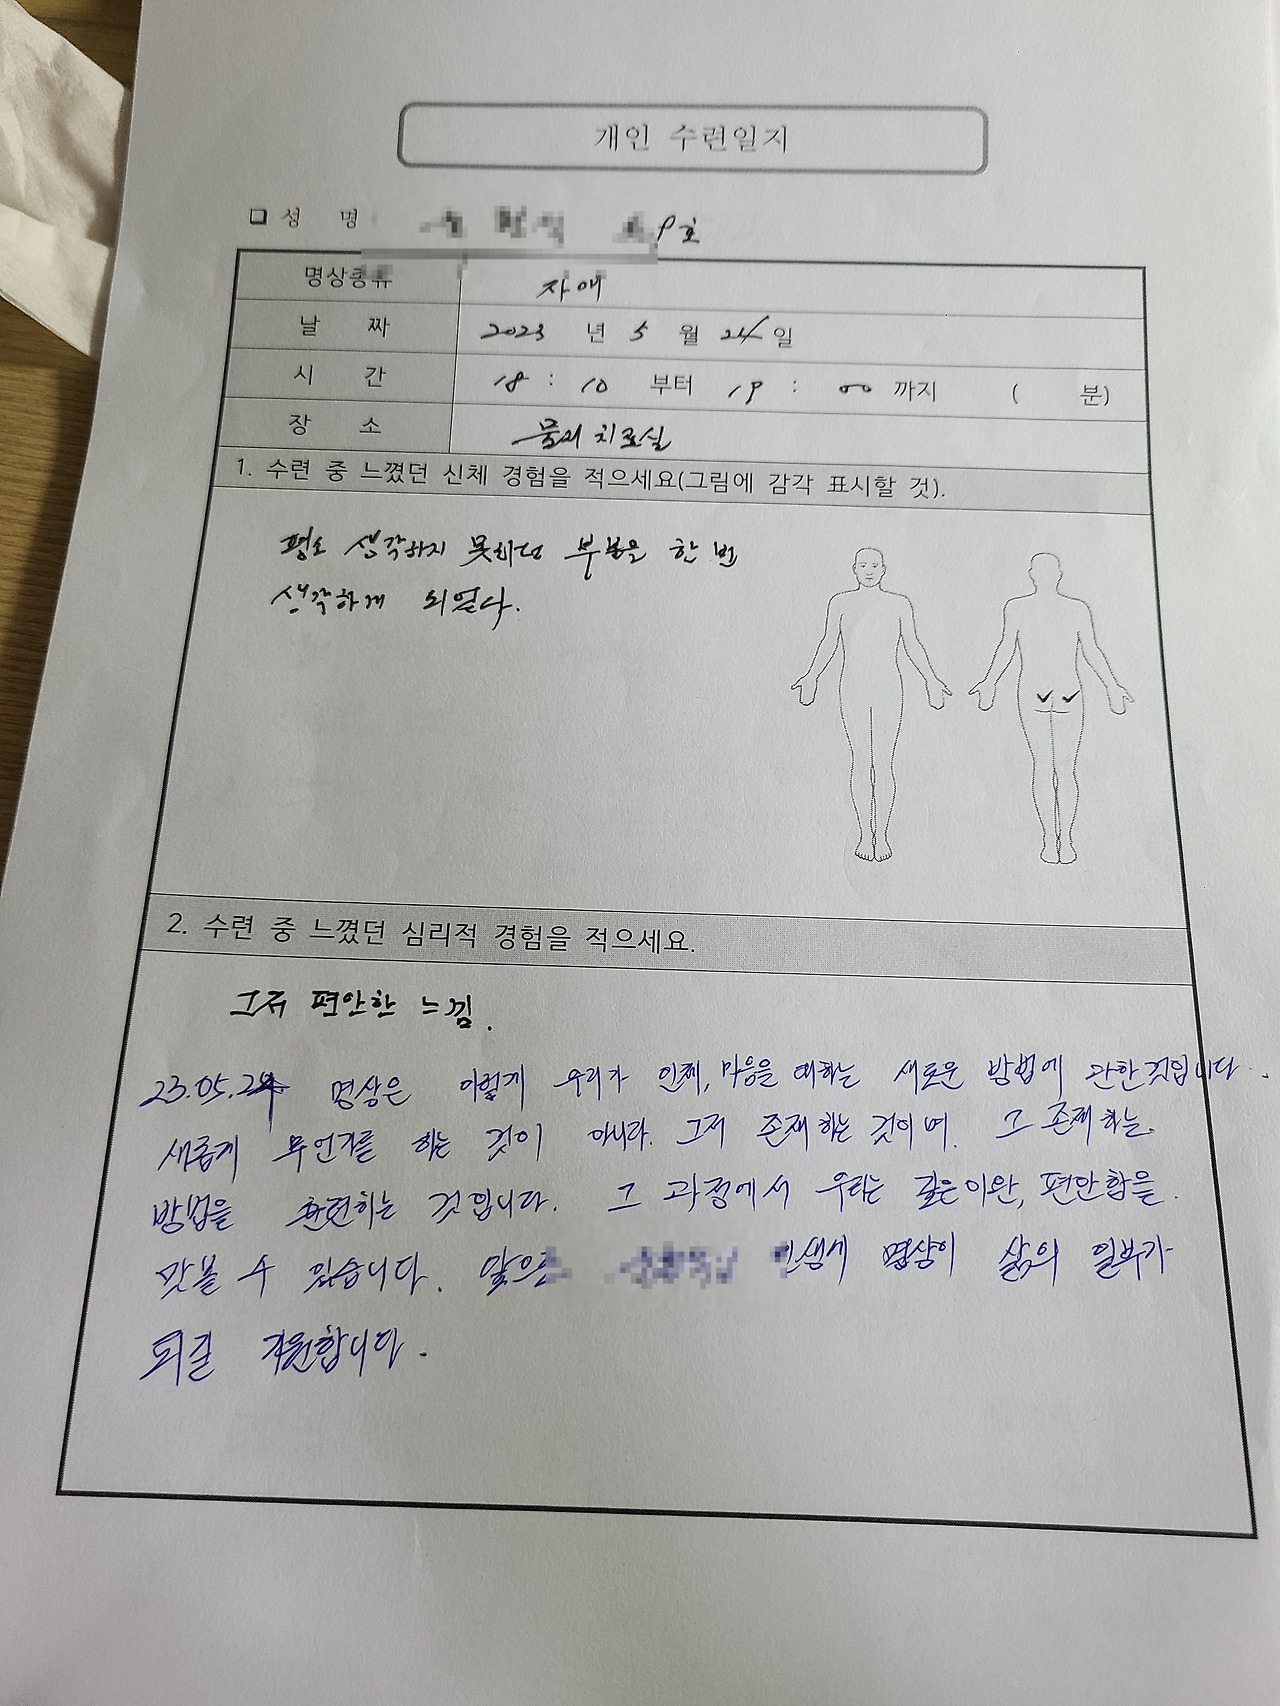 개인 수련일지
□ 성 명 9호
명상종류 자애
날 짜 2023 년 5 월 24 일
시 간 18 : 10 부터 19 : 00 까지 ( 분)
장 소 물리치료실
1. 수련 중 느꼈던 신체 경험을 적으세요(그림에 감각 표시할 것).
평소 생각하지 못하던 부분을 한 번
생각하게 되었다.
2. 수련 중 느꼈던 심리적 경험을 적으세요.
그저 편안한 느낌.
23.05.24 명상은 이렇게 우리가 신체, 마음을 대하는 새로운 방법에 관한 것입니다.
새롭게 무언가를 하는 것이 아니다. 그저 존재하는 것이며. 그 존재하는
방법을 훈련하는 것입니다. 그 과정에서 우리는 깊은 이완, 편안함을
맛볼 수 있습니다. 앞으로 인생에 명상이 삶의 일부가
되길 기원합니다.